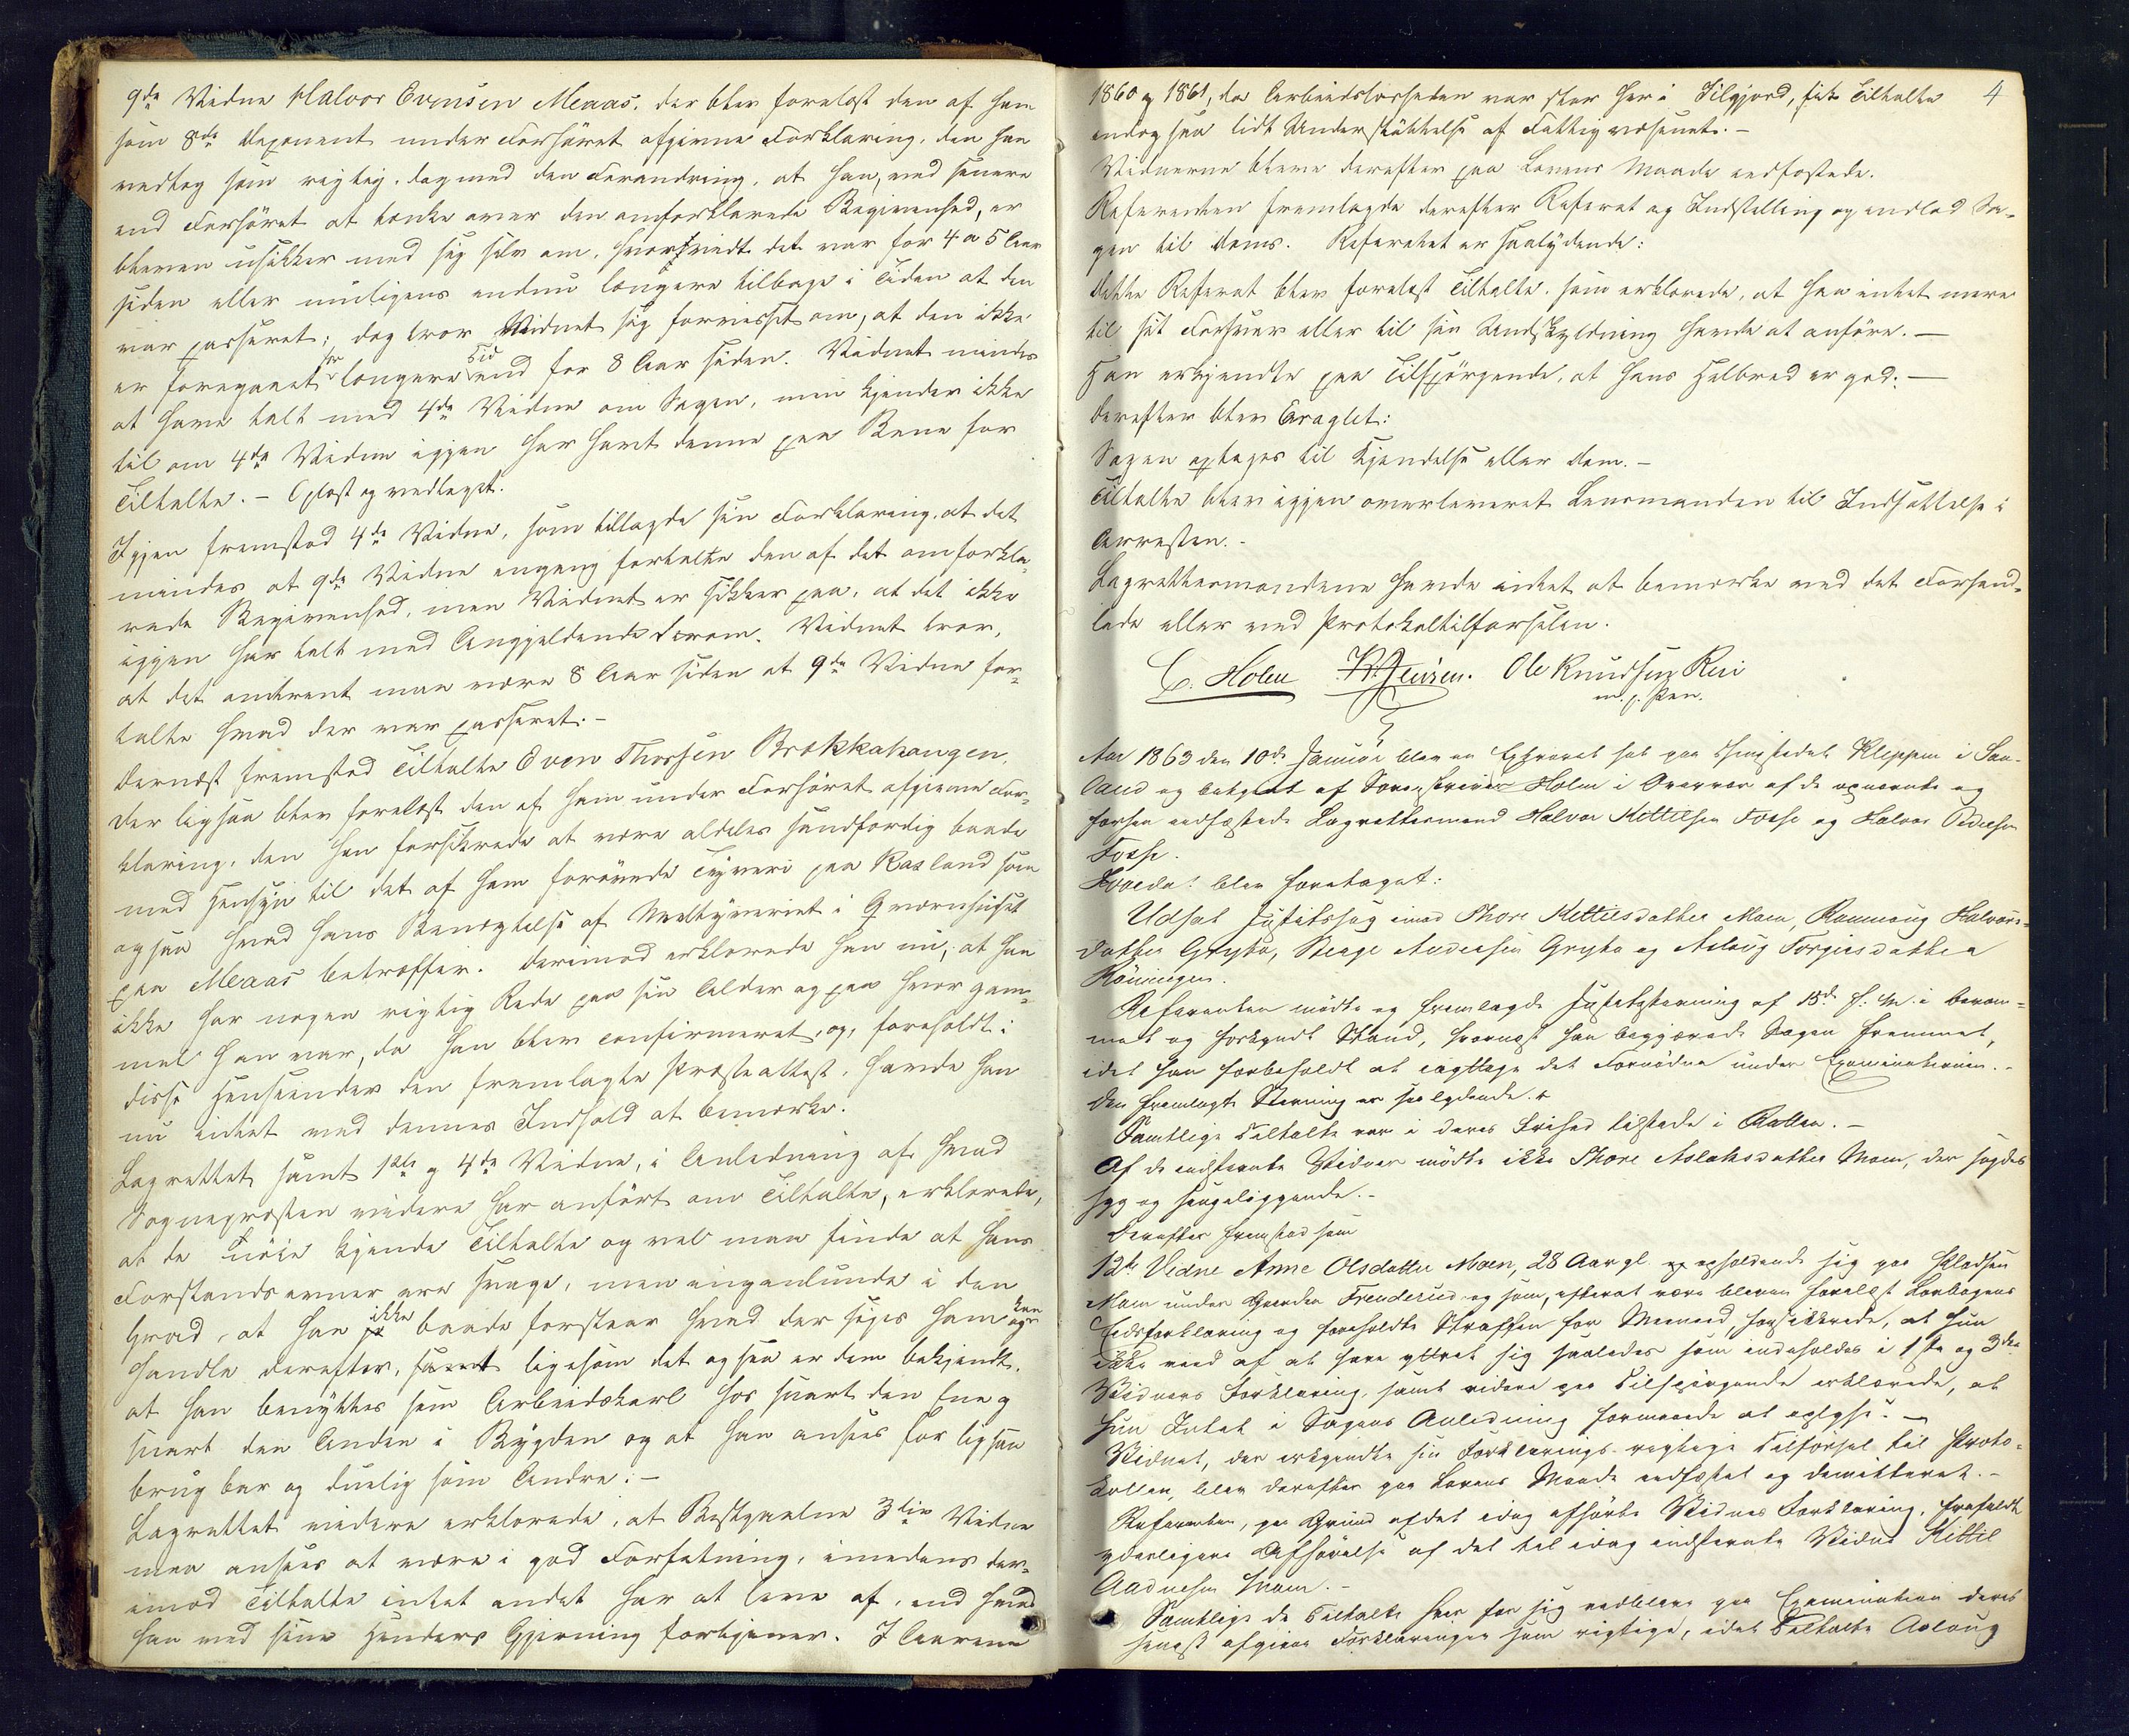 9de Vidne Halvor Evensen Meaas, der blev forelæst den af ham
som 8de Deponent under Forhöret afgivne Forklaring, den han
vedtog som rigtig, dog med den Forandring, at han, ved senere
end Forhöret at tænke over den omforklarede Begivenhed, er
bleven usikker med sig selv om, hvorvidt det var for 4 a 5 Aar
siden eller muligens endnu længere tilbage i Tiden at den
var passeret; dog tror Vidnet sig forvisset om, at den ikke
er foregaaet for længere Tid end for 8 Aar siden. Vidnet mindes
at have talt med 4de Vidne om Sagen, men kjender ikke
til om 4de Vidne igjen har havt denne paa Bane for
Tiltalte. – Oplæst og vedtaget.
Igjen fremstod 4de Vidne, som tillagde sin Forklaring, at det
mindes at 9de Vidne engang fortalte den af det omforkla-
rede Begivenhed, men Vidnet er sikker paa, at det ikke
igjen har talt med Angjældende derom. Vidnet tror,
at det omtrent maa være 8 Aar siden at 9de Vidne for-
talte hvad der var passeret. –
Dernæst fremstod Tiltalte Even Thorsen Brækkahaugen,
der ligsaa blev forelæst den af ham under Forhöret afgivne For-
klaring, den han forsikrede at være aldeles sandfærdig baade
med Hensyn til det af ham forövede Tyveri paa Rasland som
ogsaa hvad hans Benægtelse af Meltyveriet i Qværnhuset
paa Meaas betræffer. Derimod erklærede han nu, at han
ikke har nogen rigtig Rede paa sin Alder og paa hvor gam-
mel han var, da han blev confirmeret, og, foreholdt i
disse Henseender den fremlagte Præsteattest, havde han
nu intet ved dennes Indhold at bemærke.
Lagrettet samt 1ste og 4de Vidne, i Anledning af hvad
Sognepræsten videre har anfört om Tiltalte, erklærede,
at de nöie kjende Tiltalte og vel maa sande at hans
Forstandsevner ere svage, men ingenlunde i den
Grad, at han ikke baade forstaar hvad der siges ham og kan
handle derefter, samt ligesom det ogsaa er dem bekjendt,
at han benyttes som Arbeidskarl hos snart den Ene og
snart den Anden i Bygden og at han ansees for ligsaa
brugbar og duelig som Andre. –
Lagrettet videre erklærede, at Bestjaalne 3die Vidne
maa ansees at være i god Forfatning, imedens der-
imod Tiltalte intet andet har at leve af, end hvad
han ved sine Hænders Gjerning fortjener. I Aarene
4
1860 og 1861, da Arbeidslösheden var stor her i Silgjord, fik Tiltalte
endog saa lidt Understöttelse af Fattigvæsenet. –
Vidnerne bleve derefter paa Lovens Maade eedfæstede.
Referenten fremlagde derefter Referat og Indstilling og indlod Sa-
gen til Doms. Referatet er saalydende:
Dette Referat blev forelæst Tiltalte, som erklærede, at han intet mere
til sit Forsvar eller til sin Undskyldning havde at anföre. –
Han erkjendte paa Tilspörgende, at hans Helbred er god. –
Derefter blev Eragtet:
Sagen optages til Kjendelse eller Dom. –
Tiltalte blev igjen overleveret Lensmanden til Indsættelse i
Arresten. –
Lagrettesmændene havde intet at bemærke ved det Forhand-
lede eller ved Protokoltilförselen.
C. Holm Jensen. Ole Knudsen Rui
m. p. Pen.
Aar 1863 den 10de Januar blev en Extraret sat paa Thingstedet Kleppen i Sau-
land og betjent af Sorenskriver Holm i Overvær af de opnævnte og
forhen eedfæstede Lagrettesmænd Halvor Kittilsen Fosse og Halvor Pedersen
Fosse.
Hvorda blev foretaget:
Udsat Justitssag imod Thore Kittilsdatter Moen, Ranneug Halvors-
datter Gryta, Birge Andersen Gryta og Aslaug Torgersdatter
Rönningen.
Referenten mödte og fremlagde Justitsstevning af 15de f. M. i beram-
met og forkyndt Stand, hvornæst han begjærede Sagen fremmet,
idet han forbeholdt at iagttage det Fornödne under Examinationen. –
Den fremlagte Stevning er saalydende:
Samtlige Tiltalte var i deres Frihed tilstede i Retten. –
Af de indstevnte Vidner mödte ikke Thore Aslaksdatter Moen, der sagdes
syg og sengeliggende. –
Derefter fremstod som
12te Vidne Anne Olsdatter Moen, 28 Aar gl. opholdende sig paa Pladsen
Moen under Gaarden Frendesund og som, efterat være bleven forelæst Lovbogens
Eedsforklaring og foreholdte Straffen for Meeneed, forsikkrede, at hun
ikke veed af at have yttret sig saaledes som indeholdes i 1ste og 3die
Vidners Forklaring, samt videre paa Tilspörgende erklærede, at
hun Intet i Sagens Anledning formaaede at oplyse. –
Vidnet, der erkjendte sin Forklarings rigtige Tilförsel til Proto-
kollen, blev derefter paa Lovens Maade eedfæstet og demitteret. –
Referenten, paa Grund af det idag afhörte Vidnes Forklaring, frafaldt
yderligere Afhörelse af det til idag indstevnte Vidne Kittil
Aadnesen Moen. –
Samtlige de Tiltalte hver for sig vedbleve paa Examination deres
senest afgivne Forklaringer som rigtige, idet Tiltalte Aslaug